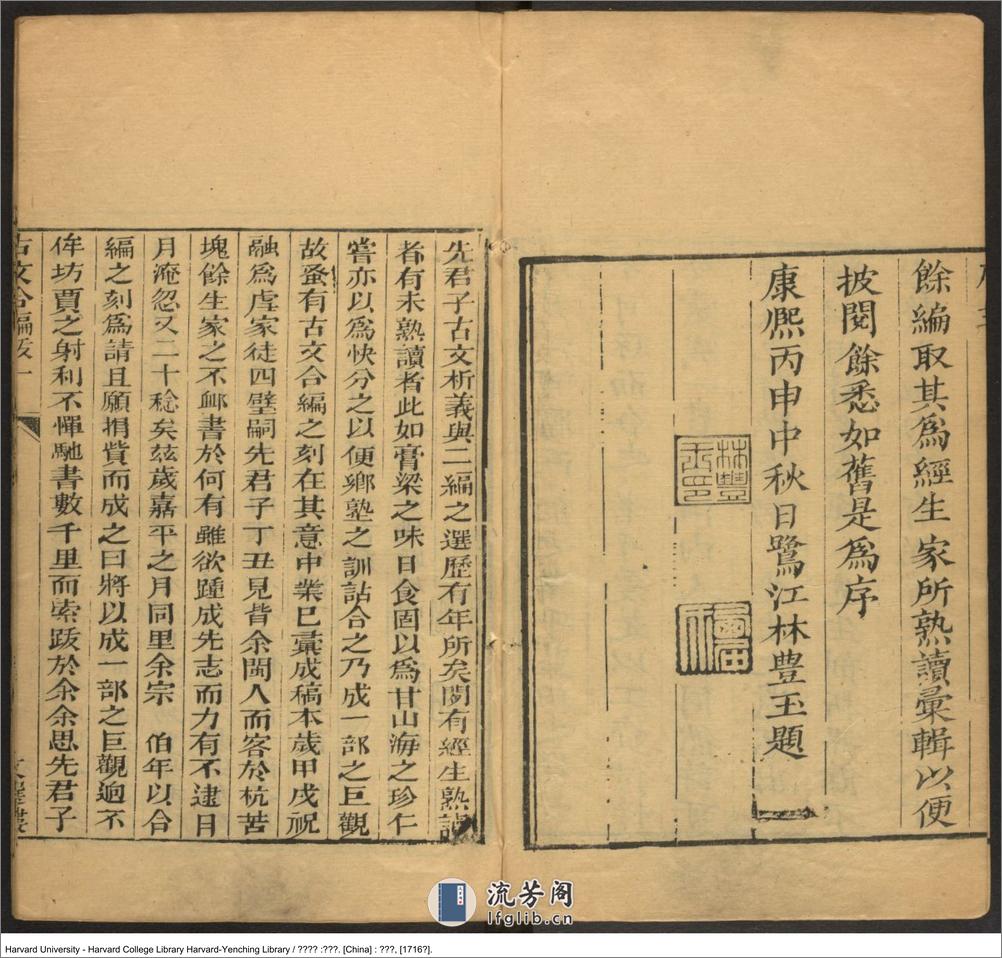 餘編取其爲經生家所熟讀彙輯以便
披閱餘悉如舊是爲序
康熙丙申中秋日鷺江林豊玉題
林豐玉印
先君子古文析義與二編之選歷有年所矣間有經生熟誦
者有未熟讀者此如膏梁之味日食固以爲甘山海之珍仁
嘗亦以爲快分之以便鄉塾之訓詁合之乃成一部之巨觀
故蚤有古文合編之刻在其意中業已彙成稿本歲甲戌祝
融爲虐家徒四壁嗣先君子丁丑見背余閩人而客於杭苦
塊餘生家之不卹書於何有雖欲踵成先志而力有不逮日
月淹忽又二十稔矣茲歲嘉平之月同里余宗 伯年以合
編之刻爲請且願捐貲而成之曰將以成一部之巨觀逈不
侔坊賈之射利不憚馳書數千里而索跋於余余思先君子
古文合編跋 一
流芳阁
lfglib.cn
Harvard University - Harvard College Library Harvard-Yenching Library / ???? :???. [China] : ???, [1716?].